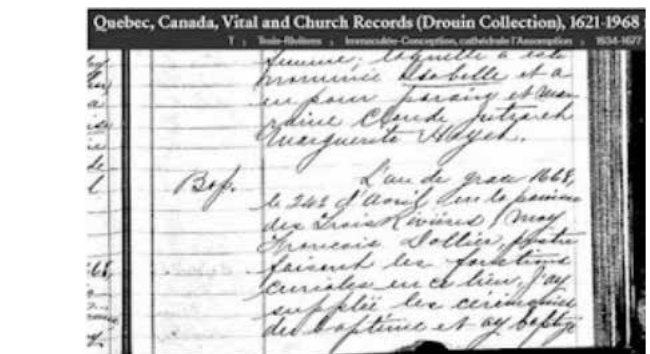 Quebec, Canada, Vital and Church Records (Drouin Collection), 1621-1968
T > Trois-Rivières > Immaculée-Conception, cathédrale l'Assomption > 1634-1677
femme; laquelle a esté
nommée Isabelle et a
eu pour parain et mar
raine Claude Jutrach
Marguerite Hayet.
Bap.
L'an de grace 1668,
le 24e d'Avril en la paroisse
des Trois Rivières, moy
Francois Dollier, prêtre
faisant les fonctions
curiales en ce lieu, j'ay
supplée les cérémonies
du baptême et ay baptizé